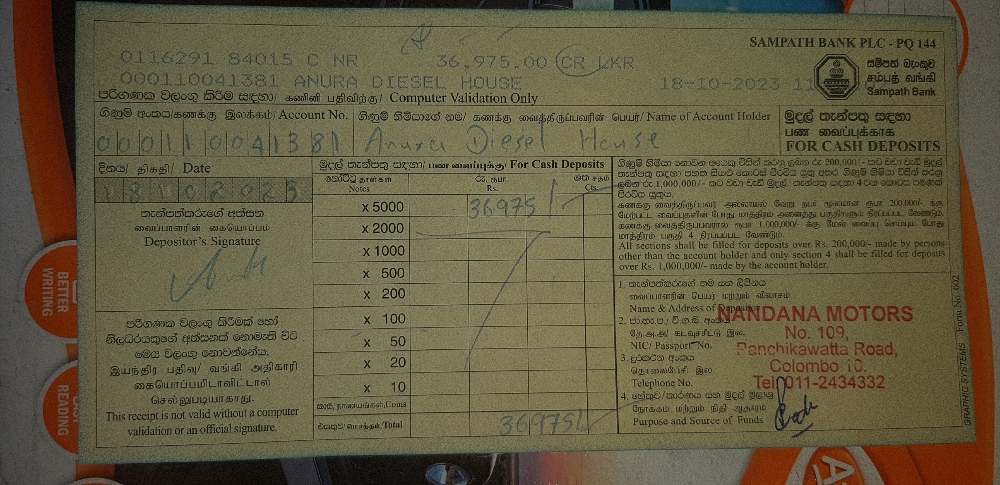 SAMPATH BANK PLC - PQ 144
0116291 84015 C NR 36,975.00 CR LKR
000110041381 ANURA DIESEL HOUSE 18-10-2023 11
සම්පත් බැංකුව
சம்பத் வங்கி
Sampath Bank
පරිගණක වලංගු කිරීම සඳහා/ கணினி பதிவிற்கு/ Computer Validation Only
ගිණුම් අංකය/கணக்கு இலக்கம்/ Account No. ගිණුම් හිමියාගේ නම/ கணக்கு வைத்திருப்பவரின் பெயர்/ Name of Account Holder
000110041381 Anura Diesel House
මුදල් තැන්පතු සඳහා
பண வைப்புக்காக
FOR CASH DEPOSITS
දිනය/ திகதி/ Date
18102023
තැන්පත්කරුගේ අත්සන
வைப்பாளரின் கையொப்பம்
Depositor's Signature
මුදල් තැන්පතු සඳහා/ பண வைப்புக்கு/ For Cash Deposits
නෝට්ටු தாள்கள் Notes
රු. ரூபா Rs.
ශත சதம் Cts.
x 5000 36975
x 2000
x 1000
x 500
x 200
x 100
x 50
x 20
x 10
කාසි, நாணயங்கள், Coins
එකතුව/மொத்தம்/Total 36975
පරිගණක වලංගු කිරීමක් හෝ
නිලධරයකුගේ අත්සනක් නොමැති විට
මෙය වලංගු නොවන්නේය.
இயந்திர பதிவு/ வங்கி அதிகாரி
கையொப்பமிடாவிட்டால்
செல்லுபடியாகாது.
This receipt is not valid without a computer
validation or an official signature.
All sections shall be filled for deposits over Rs. 200,000/- made by persons
other than the account holder and only section 4 shall be filled for deposits
over Rs. 1,000,000/- made by the account holder.
1. තැන්පත්කරුගේ නම සහ ලිපිනය
வைப்பாளரின் பெயர் மற்றும் விலாசம்
Name & Address of Depositor
2. ජා.හැ.ප./ වි.ග.බ. අංකය
தே.அ.அ/ கடவுச்சீட்டு இல.
NIC/ Passport No.
3. දුරකථන අංකය
தொலைபேசி இல.
Telephone No.
4.
நோக்கம் மற்றும் நிதி ஆதாரம்
Purpose and Source of Funds
NANDANA MOTORS
No. 109,
Panchikawatta Road,
Colombo 10.
Tel: 011-2434332
GRAPHIC SYSTEMS Form No. 002
BETTER
WRITING
READING